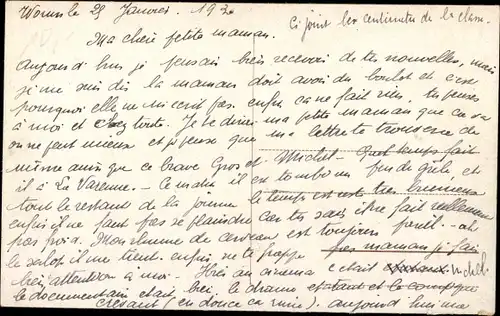 Worms le 25 Janvier. 192
Ci joint les centimetres de la classe.
Ma chère petite maman.
Aujourd'hui je pensais bien recevoir de tes nouvelles, mais
je me suis dis la maman doit avoir du boulot et c'est
pourquoi elle ne m'ecrit pas. enfin ca ne fait rien, tu penses
à moi et c'est tout. Je te dirai ma petite maman que ca va
on ne peut mieux et je pense que ma lettre te trouvera de
même ainsi que ce brave Gros et Michel — Quel temps fait
il à La Varenne. — Ce matin il est tombé un peu de grêle, et
tout le restant de la journée le temps est resté très brumeux
enfin il ne faut pas se plaindre car tu sais il ne fait reellement
pas froid. Mon rhume de cerveau est toujours pareil — ah
le salop il me tient. enfin ne te frappe pas maman je fais
bien attention à moi. — Hier au cinema c'etait
le documentaire etait bien, le drame etait et le comique
crevant (en douce ca rime). aujourd'hui ma